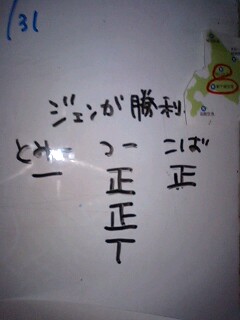 /31
ジェンが勝利
とみー つー こば
一 正 正
正
丅